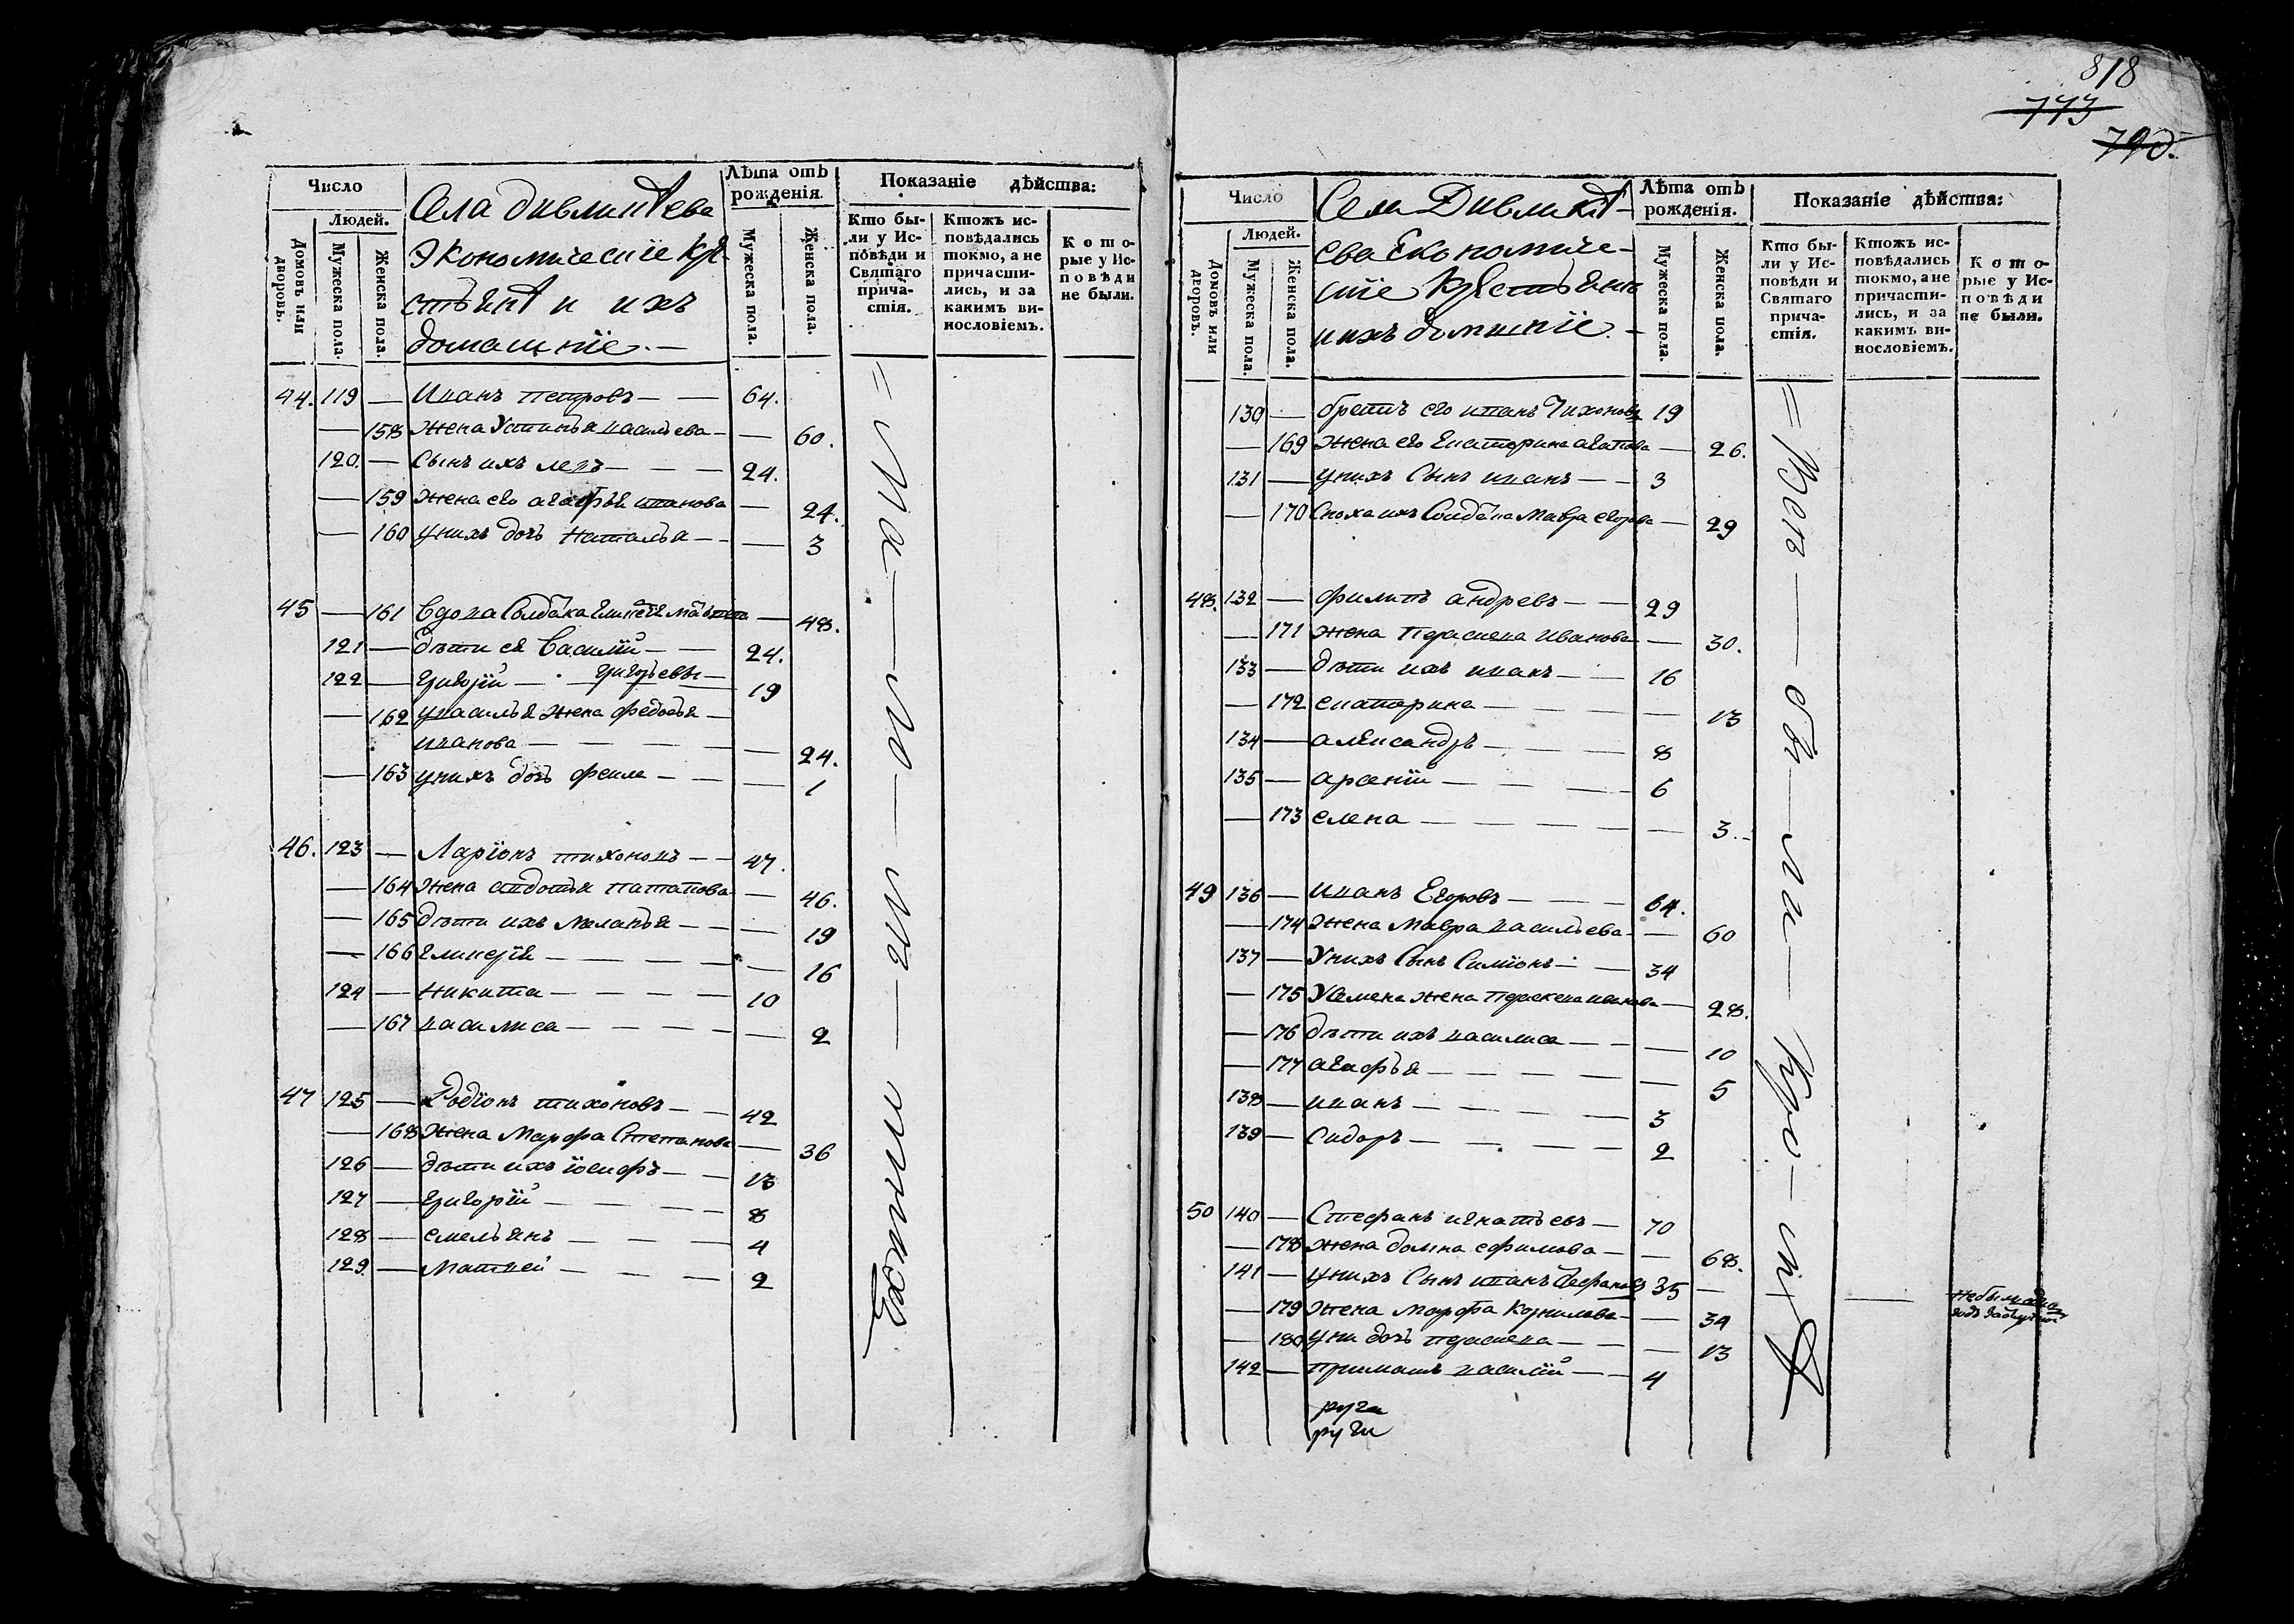 818
773
790.
Число
Людей.
Домовъ или дворовъ.
Мужеска пола.
Женска пола.
Села дивлитѣева
Экономическіе кре-
стьянѣ и ихъ
домашніе. —
Лѣта отъ рожденія.
Мужеска пола.
Женска пола.
Показаніе дѣйства:
Кто бы-
ли у Ис-
повѣди и
Святаго
прича-
стія.
Ктожъ ис-
повѣдались
токмо, а не
причасти-
лись, и за
какимъ ви-
нословіемъ.
Кото-
рые у Ис-
повѣди
не были.
44. 119 — Иванъ петровъ — — 64.
— 158 жена Устинья васильева — — 60.
120. — Сынъ ихъ левъ — — — 24.
— 159 жена его агафья иванова — 24.
— 160 у нихъ дочь Наталья — — — 3
45 — 161 вдова Солдатка — 48.
121 — дѣти ея Василій — — 24.
122 — григорій — григорьевы — 19
— 162 у василья жена федосья —
иванова — — — — — 24.
— 163 у нихъ дочь фекла — — — 1
46. 123 — Ларіонъ тихоновъ — — 47.
— 164 жена авдотья патапова — 46.
— 165 дѣти ихъ Меланья — — — 19
— 166 гликерія — — — — — 16
124 — никита — — — — 10
— 167 василиса — — — — — 2
47 125 — Родіонъ тихоновъ — — 42
— 168 жена Марфа Степанова — 36
126 — дѣти ихъ іосифъ — — 13
127 — григорій — — — — 8
128 — емельянъ — — — 4
129. — Матвей — — — — 2
Число
Людей.
Домовъ или дворовъ.
Мужеска пола.
Женска пола.
Села
ева Економиче-
скіе крестьянѣ
и ихъ домашніе. —
Лѣта отъ рожденія.
Мужеска пола.
Женска пола.
Показаніе дѣйства:
Кто бы-
ли у Ис-
повѣди и
Святаго
прича-
стія.
Ктожъ ис-
повѣдались
токмо, а не
причасти-
лись, и за
какимъ ви-
нословіемъ.
Кото-
рые у Ис-
повѣди
не были.
130 — братъ его иванъ Тихоновъ 19
— 169 жена его Екатерина агапова — 26.
131 — у нихъ Сынъ иванъ — — 3
— 170 Сноха ихъ Солдатка Мавра егорова — 29
48. 132 — филипъ андревъ — — 29
— 171 жена Параскева Иванова — 30.
133 — дѣти ихъ иванъ — — 16
— 172 екатерина — — — — 13
134 — александръ — — — — 8
135 — арсеній — — — — 6
— 173 елена — — — — — — 3. —
49 136 — иванъ Егоровъ — — — 64.
— 174 жена Мавра васильева — — 60
137 — У нихъ Сынъ Симіонъ — — 34
— 175 У Семена жена Параскева иванова — 28.
— 176 дѣти ихъ василиса — — — 10
— 177 агафья — — — — — — 5
138 — иванъ — — — — 3
139 — Сидоръ — — — — 2
50 140 — Стефанъ игнатьевъ — 70
— 178 жена домна ефимова — — 68.
141 — у нихъ Сынъ иванъ Стефановъ 35 —
— 179 жена Марфа Корнилова — — 34
— 180 у ни дочь параскева — — — 13
142 — примашъ василій — — 4